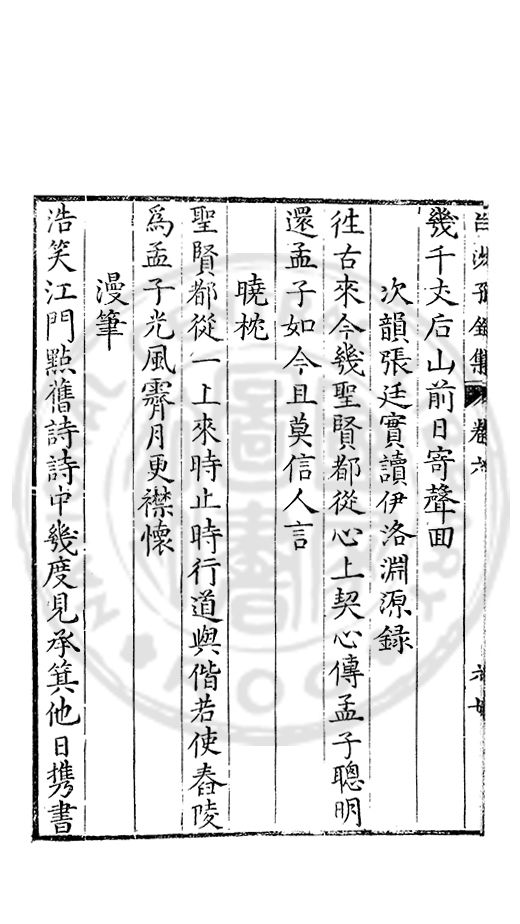 白沙子全集 卷六
幾千丈后山前日寄聲面
次韻張廷實讀伊洛淵源錄
徃古來今幾聖賢都從心上契心傳孟子聰明
還孟子如今且莫信人言
曉枕
聖賢都從一上來時止時行道與偕若使舂陵
爲孟子光風霽月更襟懷
漫筆
浩笑江門點舊詩詩中幾度見承箕他日携書